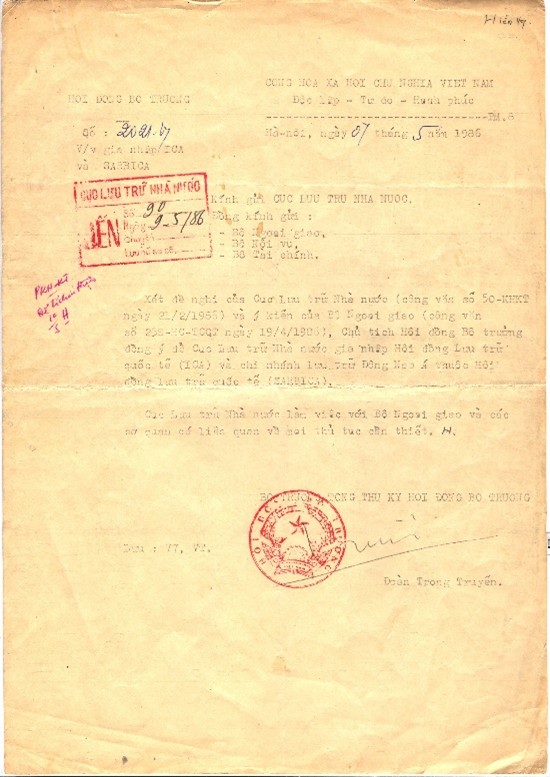 CONG HOA XA NOI CHU NGHIA VIET NAM
HOI DONG BO TRUONG
Độc lập - Tự do - Hạnh phúc
Số : 2021-V7
Hà-nội, ngày 07 tháng 5 năm 1986
V/v gia nhập/ICA
và SARBICA
CỤC LƯU TRỮ NHÀ NƯỚC
ĐẾN
Số 90
Ngày 9-5/86
Chuyển
Lưu hồ sơ số
Kính gửi CUC LUU TRU NHA NUOC.
Đồng kính gửi :
- Bộ Ngoại giao,
- Bộ Nội vụ,
- Bộ Tài chính.
Xét đề nghị của Cục Lưu trữ Nhà nước (công văn số 50-KHKT
ngày 21/2/1986) và ý kiến của Bộ Ngoại giao (công văn
số NC-TCQT ngày 19/4/1986), Chủ tịch Hội đồng Bộ trưởng
đồng ý để Cục Lưu trữ Nhà nước gia nhập Hội đồng Lưu trữ
quốc tế (ICA) và chi nhánh Lưu trữ Đông Nam Á thuộc Hội
đồng lưu trữ quốc tế (SARBICA).
Cục Lưu trữ Nhà nước làm việc với Bộ Ngoại giao và các
cơ quan có liên quan về mọi thủ tục cần thiết.
BO TRUONG TONG THU KY HOI DONG BO TRUONG
HỘI ĐỒNG BỘ TRƯỞNG
Lưu : V7, VT.
Đoàn Trọng Truyến.